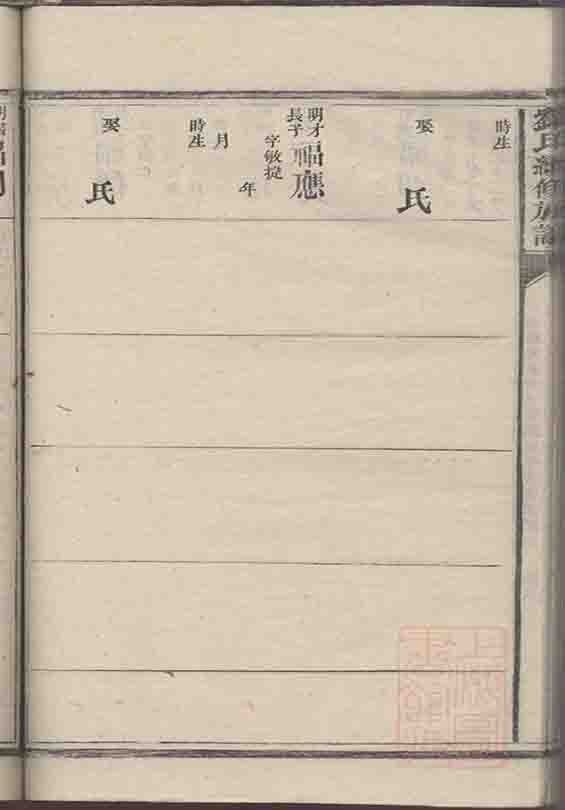 劉氏續修族譜
時生
娶
氏
明才
長子
福應
字敏提
年
月
時生
娶
氏